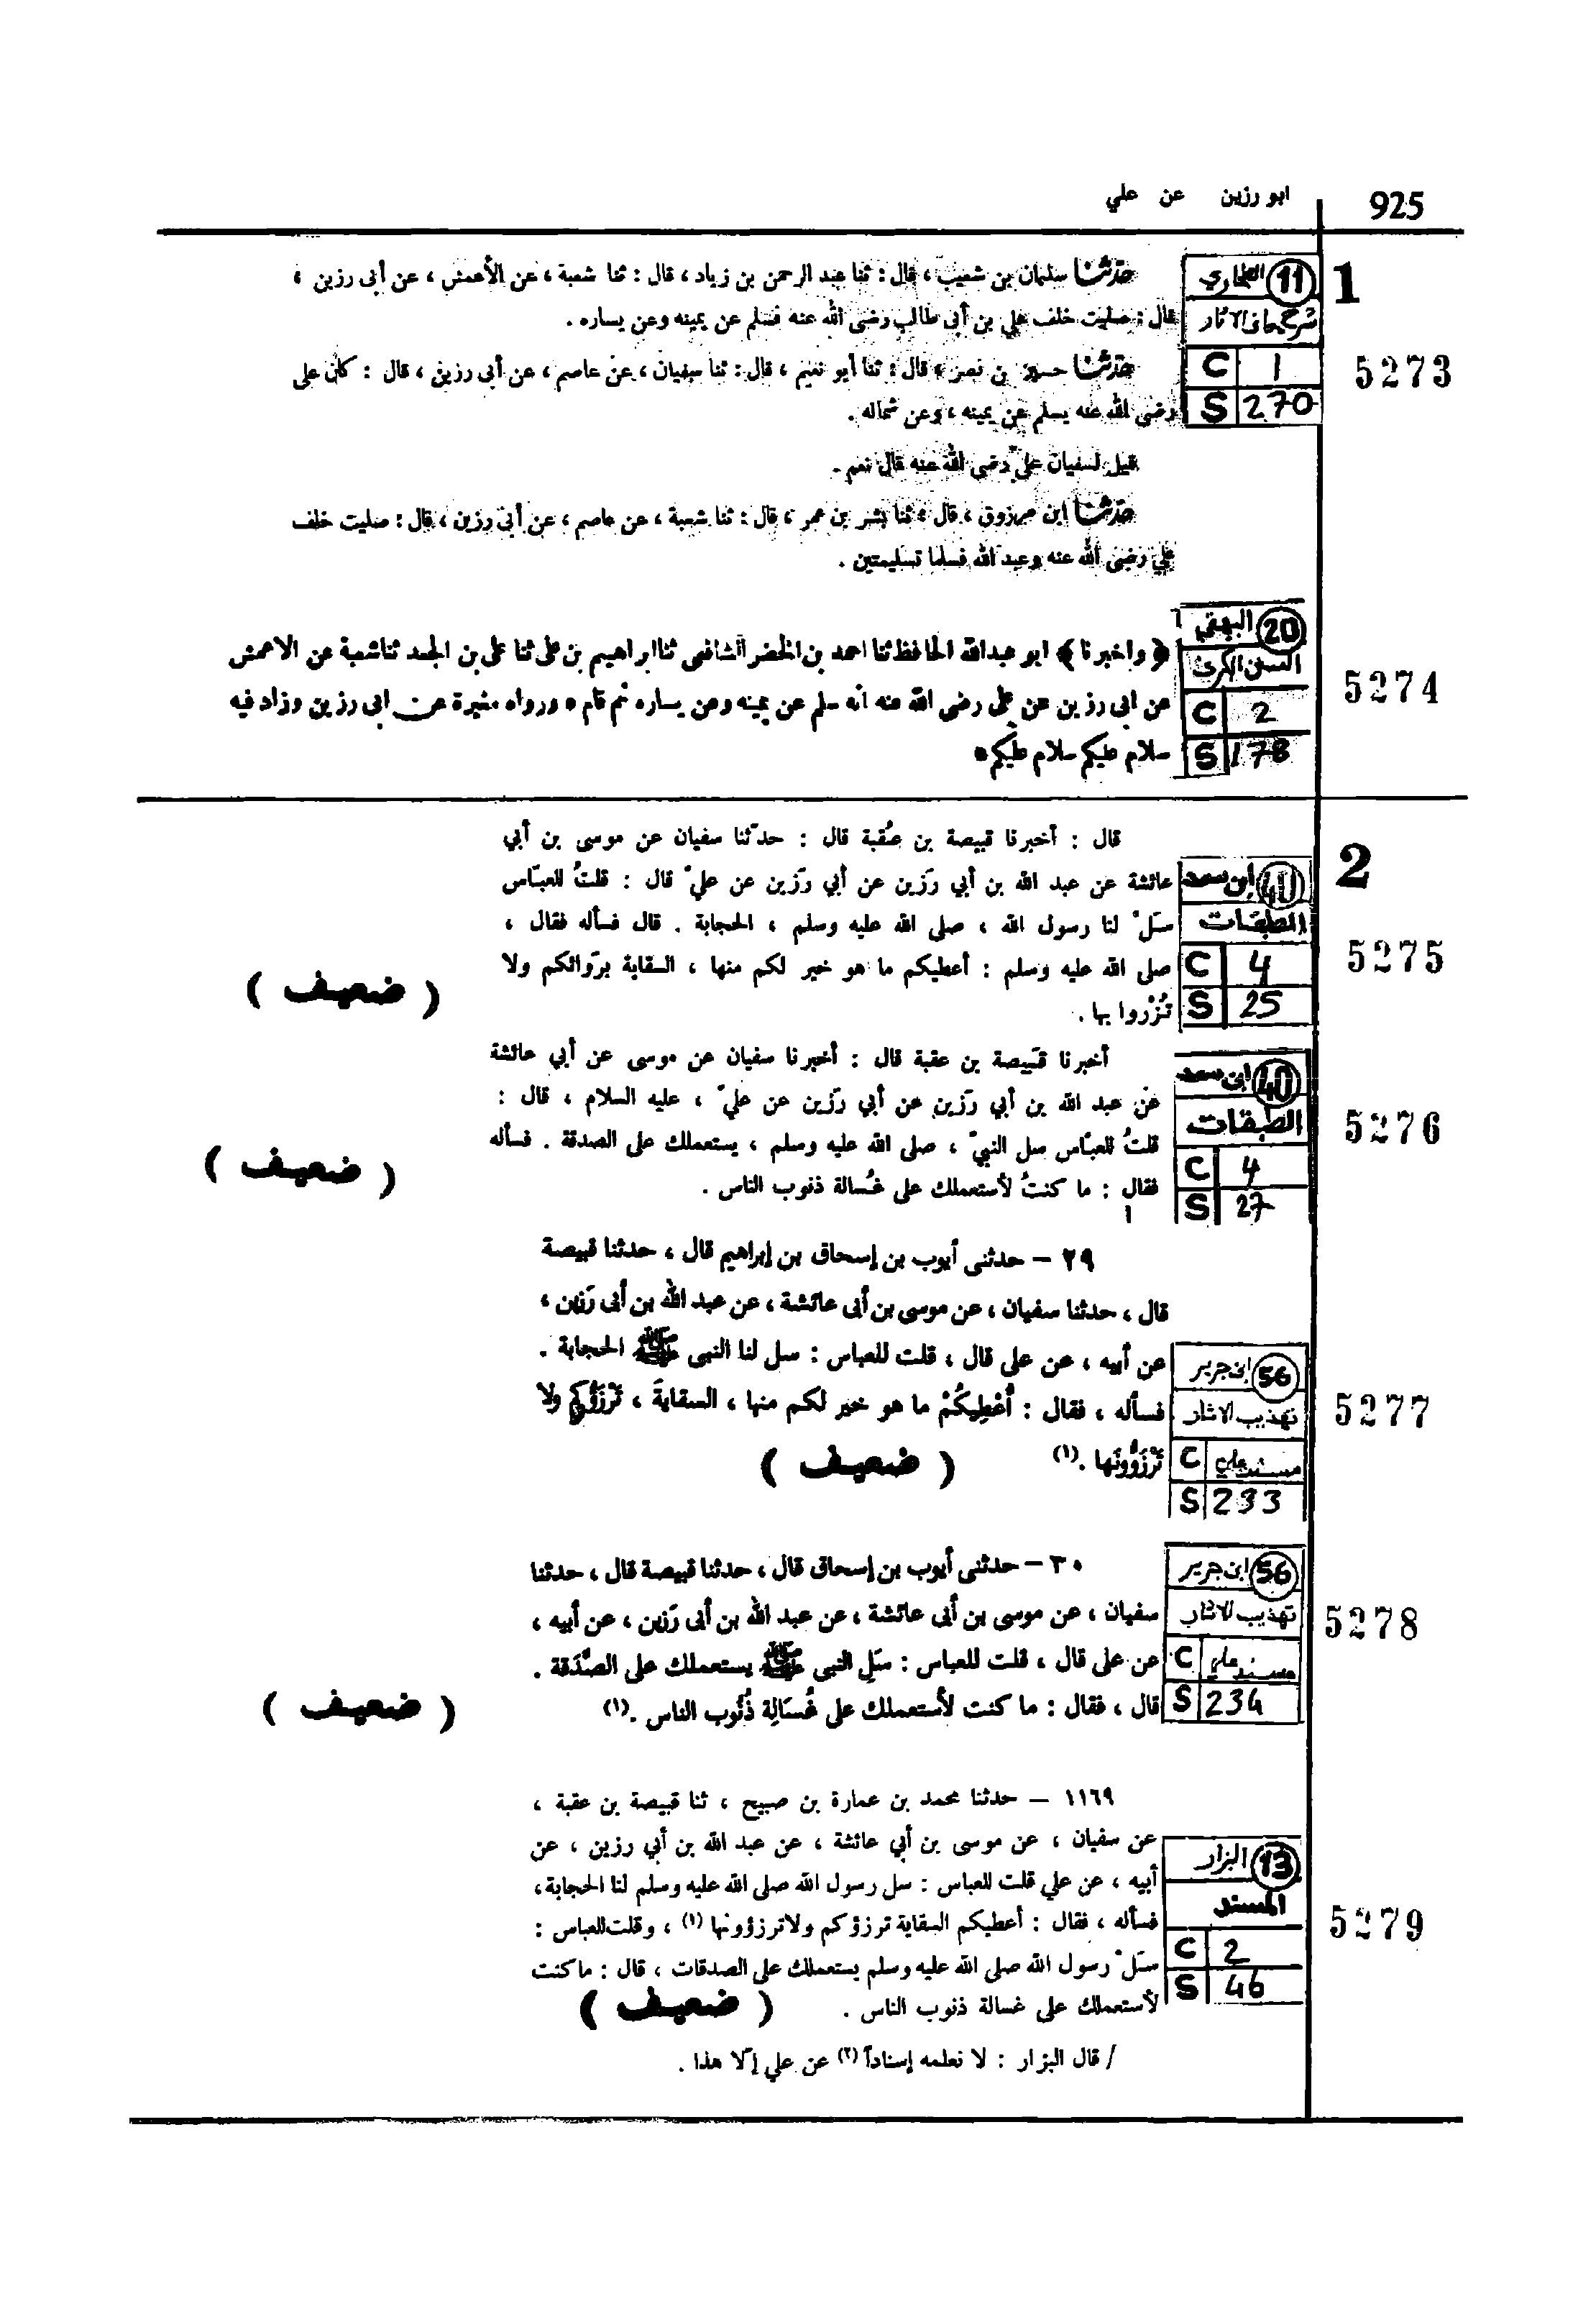 ابو رزين عن علي
925
1
11 الطحاوي
شرح معاني الاثار
C 1
S 270
5273
حدثنا سليمان بن شعيب ، قال : ثنا عبد الرحمن بن زياد ، قال : ثنا شعبة ، عن الأعمش ، عن أبى رزين ،
قال : صليت خلف على بن أبى طالب رضى الله عنه فسلم عن يمينه وعن يساره .
حدثنا حسين بن نصر ، قال : ثنا أبو نعيم ، قال : ثنا سفيان ، عن عاصم ، عن أبى رزين ، قال : كان على
رضى الله عنه يسلم عن يمينه ، وعن شماله .
قيل لسفيان علىّ رضى الله عنه قال نعم .
حدثنا ابن مرزوق ، قال : ثنا بشر بن عمر ، قال : ثنا شعبة ، عن عاصم ، عن أبى رزين ، قال : صليت خلف
علي رضى الله عنه وعبد الله فسلما تسليمتين .
20 البيهقي
السنن الكبرى
C 2
S 178
5274
﴿ واخبرنا ﴾ ابو عبدالله الحافظ ثنا احمد بن الخضر الشافعى ثنا ابراهيم بن على ثنا على بن الجعد ثنا شعبة عن الاعمش
عن ابى رزين عن على رضى الله عنه انه سلم عن يمينه وعن يساره ثم قام * ورواه مغيرة عن ابى رزين وزاد فيه
سلام عليكم سلام عليكم *
2
40 ابن سعد
الطبقات
C 4
S 25
5275
قال : أخبرنا قبيصة بن عُقبة قال : حدّثنا سفيان عن موسى بن أبي
عائشة عن عبد الله بن أبي رَزين عن أبي رَزين عن عليّ قال : قلتُ للعبّاس
سَلْ لنا رسول الله ، صلى الله عليه وسلم ، الحجابة . قال فسأله فقال ،
صلى الله عليه وسلم : أعطيكم ما هو خير لكم منها ، السقاية بِرَوائكم ولا
تُزْروا بها .
( ضعيف )
40 ابن سعد
الطبقات
C 4
S 27
5276
أخبرنا قَبيصة بن عقبة قال : أخبرنا سفيان عن موسى عن أبي عائشة
عن عبد الله بن أبي رَزين عن أبي رَزين عن عليّ ، عليه السلام ، قال :
قلتُ للعبّاس سل النبيّ ، صلى الله عليه وسلم ، يستعملك على الصدقة . فسأله
فقال : ما كنتُ لأستعملك على غُسالة ذنوب الناس .
( ضعيف )
٢٩ – حدثنى أيوب بن إسحاق بن إبراهيم قال ، حدثنا قبيصة
قال ، حدثنا سفيان ، عن موسى بن أبى عائشة ، عن عبد الله بن أبى رَزين ،
عن أبيه ، عن على قال ، قلت للعباس : سل لنا النبى ﷺ الحجابة .
فسأله ، فقال : أُعْطِيكُمْ ما هو خير لكم منها ، السقايةَ ، تَرْزَؤُكم ولا
تَرْزَؤُونَها .(١)
( ضعيف )
56 ابن جرير
تهذيب الاثار
C مسند علي
S 233
5277
٣٠ – حدثنى أيوب بن إسحاق قال ، حدثنا قبيصة قال ، حدثنا
سفيان ، عن موسى بن أبى عائشة ، عن عبد الله بن أبى رَزين ، عن أبيه ،
عن على قال ، قلت للعباس : سَلِ النبى ﷺ يستعملك على الصَّدَقة .
قال ، فقال : ما كنت لأستعملك على غُسَالِة ذُنُوب الناس .(١)
( ضعيف )
56 ابن جرير
تهذيب الاثار
C مسند علي
S 234
5278
١١٦٩ – حدثنا محمد بن عمارة بن صبيح ، ثنا قبيصة بن عقبة ،
عن سفيان ، عن موسى بن أبي عائشة ، عن عبد الله بن أبي رزين ، عن
أبيه ، عن علي قلت للعباس : سل رسول الله صلى الله عليه وسلم لنا الحجابة،
فسأله ، فقال : أعطيكم السقاية ترزؤكم ولا ترزؤونها (١) ، وقلت للعباس :
سَلْ رسول الله صلى الله عليه وسلم يستعملك على الصدقات ، قال : ما كنت
لأستعملك على غسالة ذنوب الناس .
( ضعيف )
/ قال البزار : لا نعلمه إسناداً (٢) عن علي إلا هذا .
13 البزار
المسند
C 2
S 46
5279